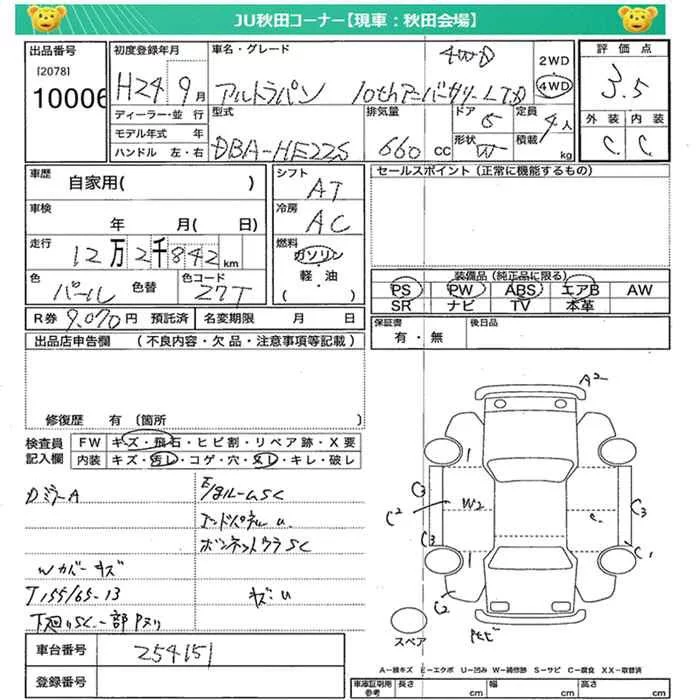 JU秋田コーナー【現車：秋田会場】
出品番号
[2078]
10006
初度登録年月
H24 9月
ディーラー・並行
モデル年式 年
ハンドル 左・右
車名・グレード
4WD
アルトラパン 10thアニバーサリーLTD
2WD
4WD
型式
DBA-HE22S
排気量
660 cc
ドア
5
形状
W
定員
4人
積載
kg
評価点
3.5
外装 内装
C C
車歴
自家用( )
車検
年 月( 日)
走行
12万2千842km
色
パール
色替
色コード
Z7T
シフト
AT
冷房
AC
燃料
ガソリン
・
軽・油
( )
R券 9,070円 預託済 名変期限 月 日
セールスポイント（正常に機能するもの）
装備品（純正品に限る）
PS PW ABS エアB AW
SR ナビ TV 本革
保証書
有・無
後日品
出品店申告欄 （不良内容・欠品・注意事項等記載）
修復歴 有 〔箇所 〕
検査員
記入欄
FW キズ・飛石・ヒビ割・リペア跡・X要
内装 キズ・汚レ・コゲ・穴・スレ・キレ・破レ
DミラーA
E/gルームSC
エンドパネルU
ボンネットウラSC
Wカバーキズ
T155/65-13
キズU
下廻りSC 一部Pヌリ
車台番号 254151
登録番号
A2
C3
C2
W2
C3
C3
C1
C2
スペア
A－線キズ E－エクボ U－凹み W－補修跡 S－サビ C－腐食 XX－取替済
車庫証明用
参考
長さ cm
幅 cm
高さ cm